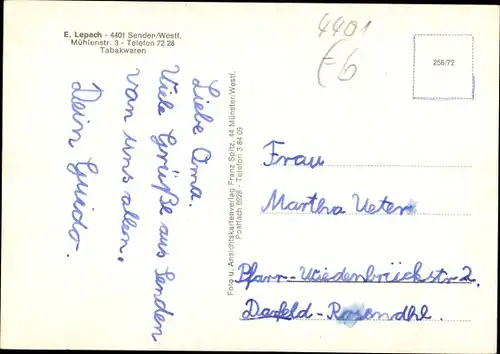 E. Lepach - 4401 Senden/Westf.
Mühlenstr. 3 - Telefon 72 28
Tabakwaren
4401
€6
256/72
Liebe Oma.
Viele Grüße aus Senden
von uns allen.
Dein Guido.
Foto u. Ansichtskartenverlag Franz Spitz, 44 Münster/Westf.
Postfach 6928 - Telefon 3 84 09
Frau
Martha Ueter
Pfarr-Wiedenbrückstr 2.
Darfeld-Rosendhl.